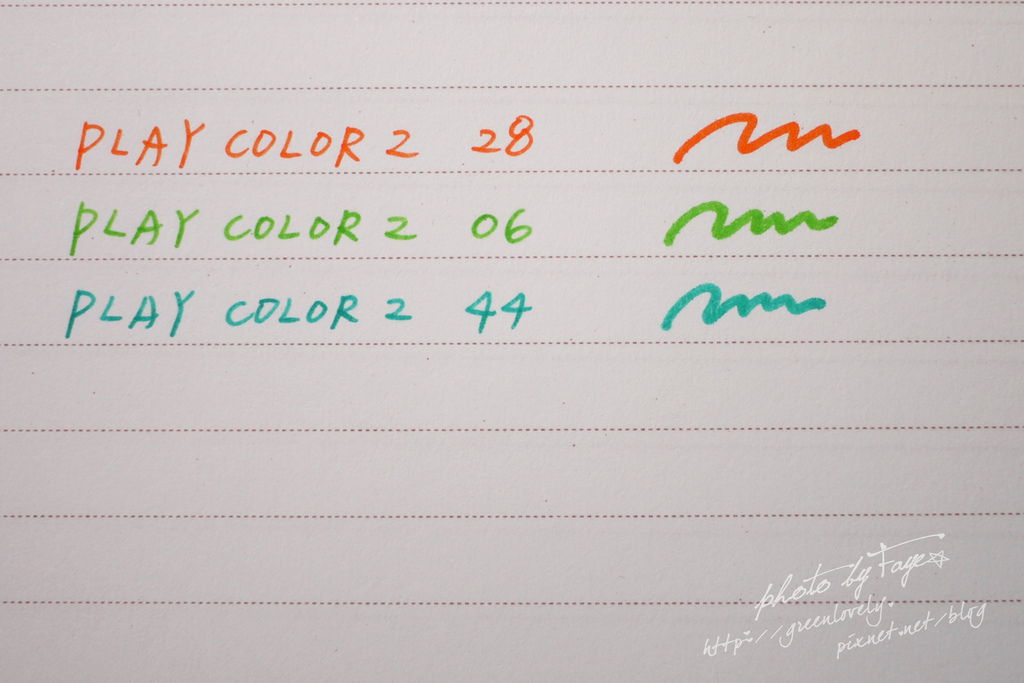 PLAY COLOR 2 28
PLAY COLOR 2 06
PLAY COLOR 2 44
photo by Faye☆
http://greenlovely.
pixnet.net/blog